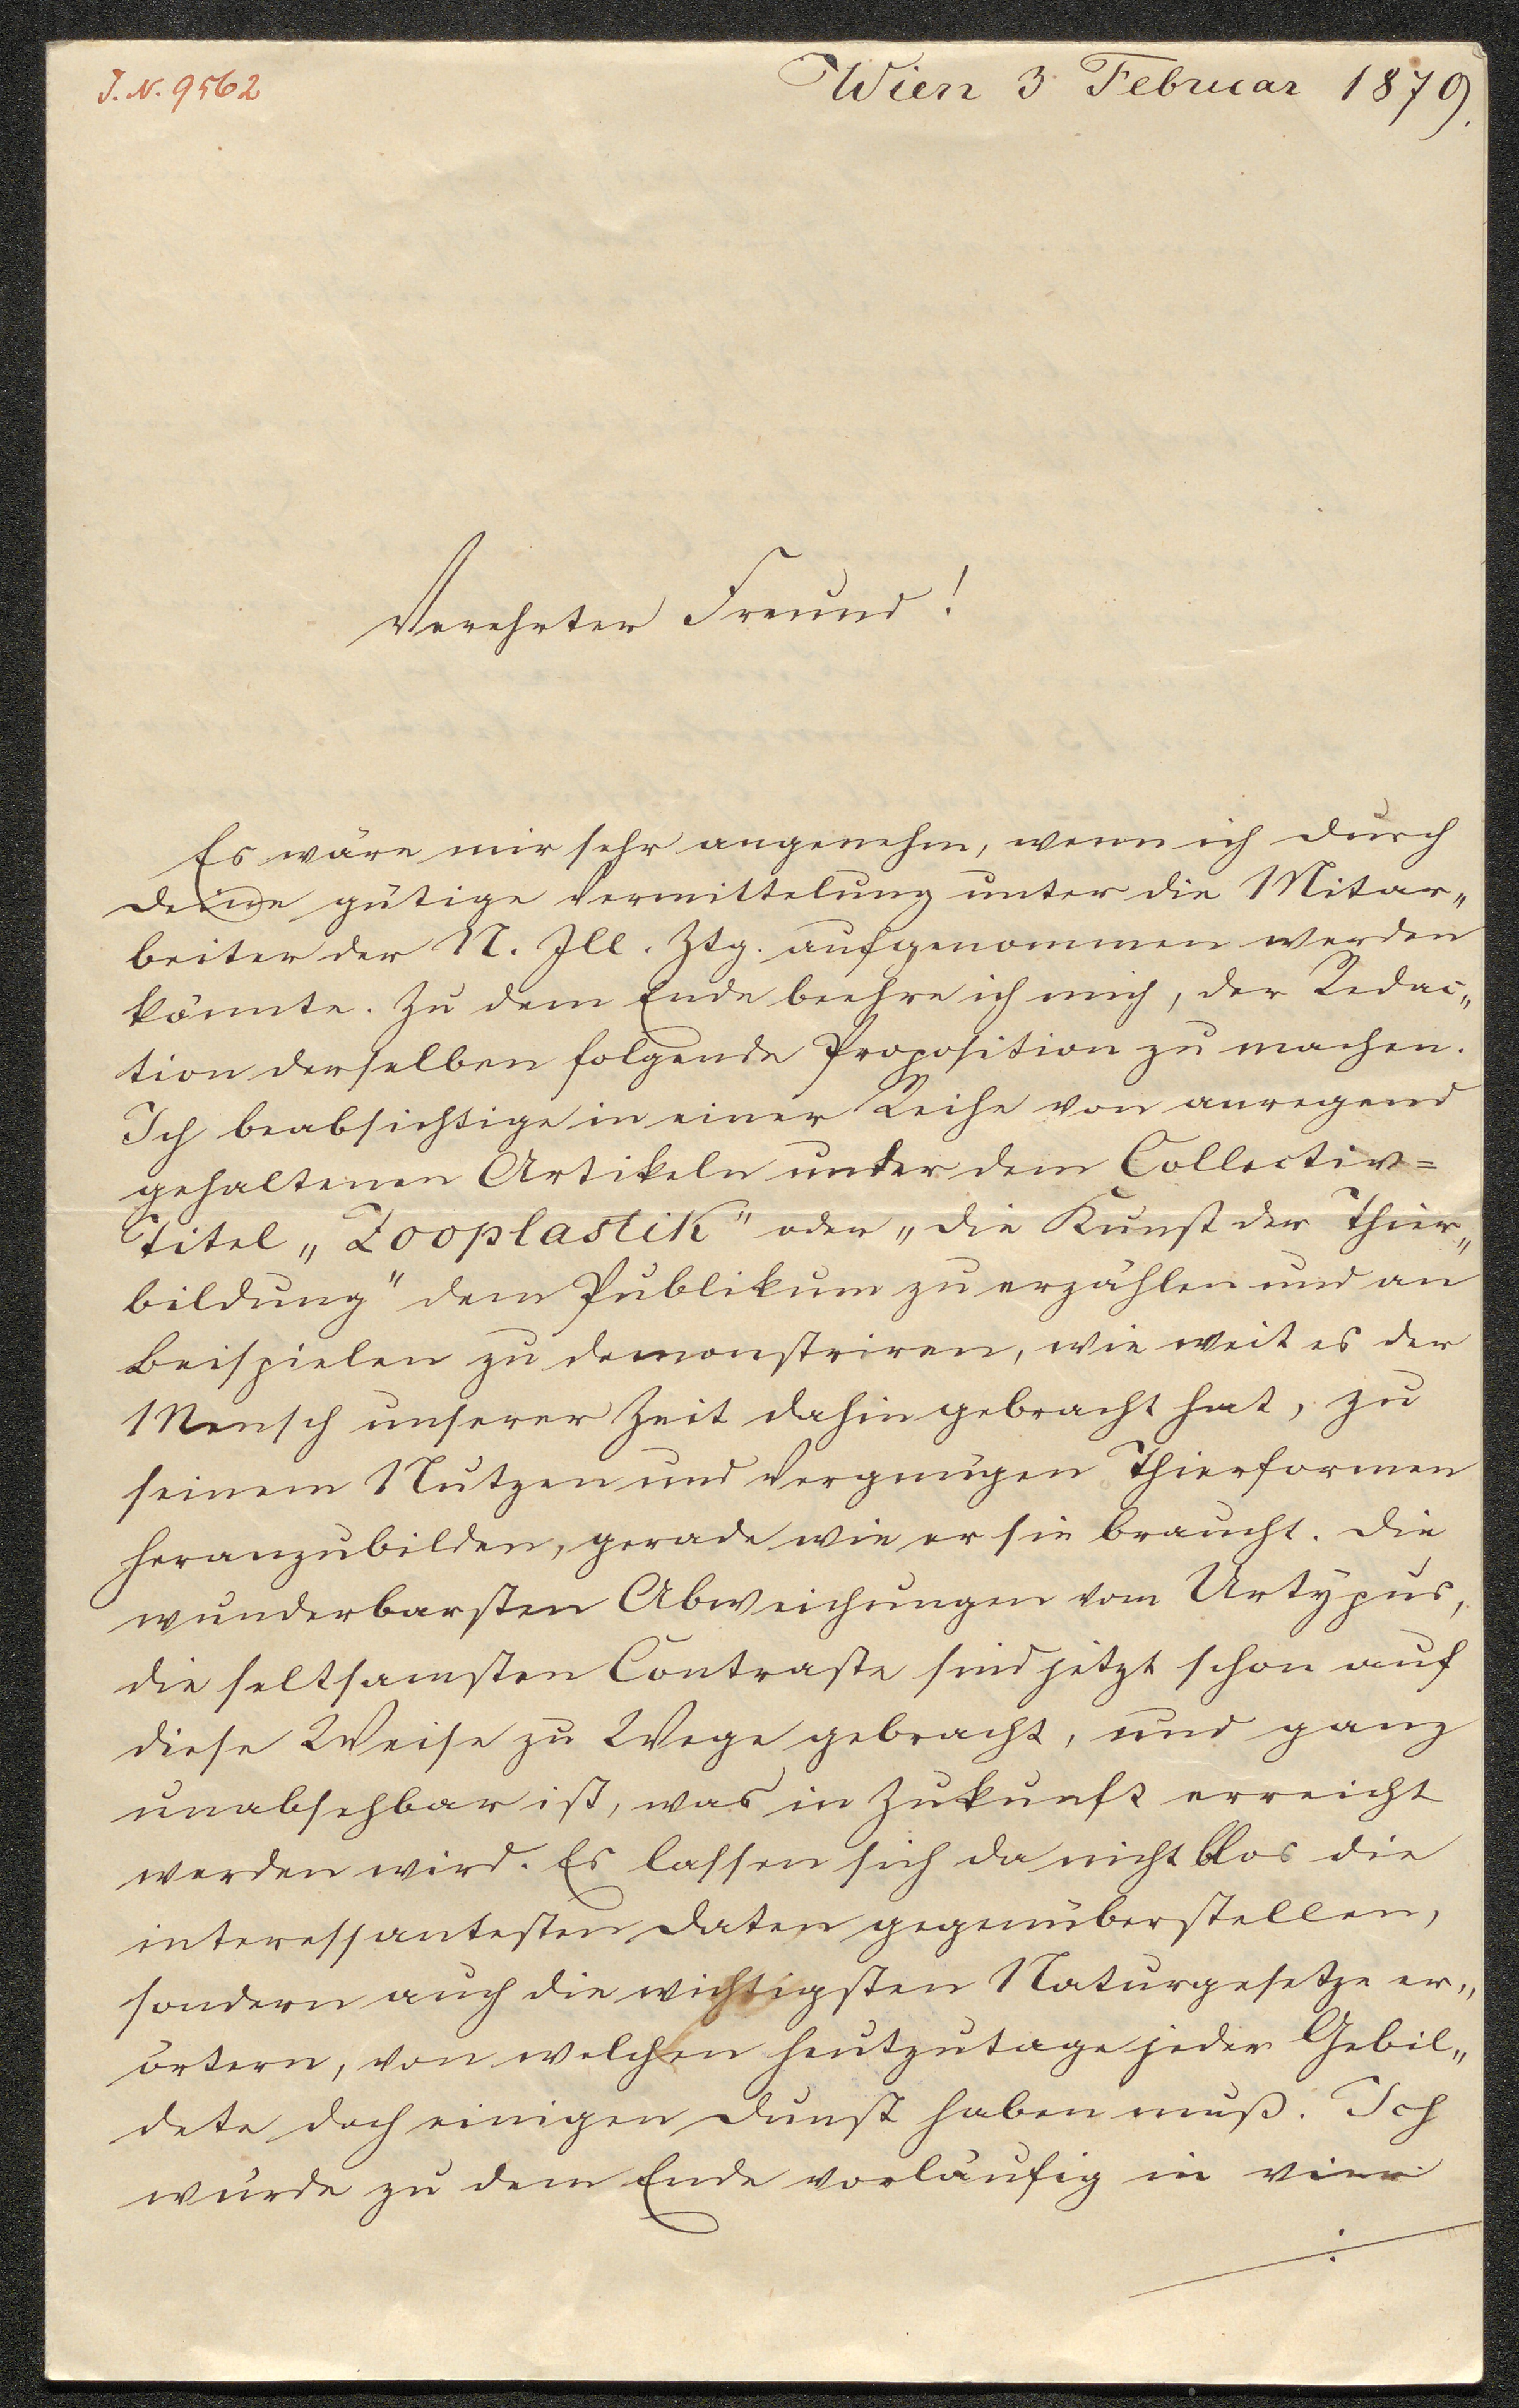 J. N. 9562
Wien 3 Februar 1879.
Verehrter Freund!
Es wäre mir sehr angenehm, wenn ich durch
deine gütige Vermittelung unter die Mitar„
beiter der N. Ill. Ztg. aufgenommen werden
könnte. Zu dem Ende beehre ich mich, der Redac„
tion derselben folgende Proposition zu machen.
Ich beabsichtige in einer Reihe von anregend
gehaltenen Artikeln unter dem Collectiv=
Titel „Zooplastik" oder „die Kunst der Thier„
bildung" dem Publikum zu erzählen und an
Beispielen zu demonstriren, wie weit es der
Mensch unserer Zeit dahin gebracht hat, zu
seinem Nutzen und Vergnügen Thierformen
heranzubilden, gerade wie er sie braucht. Die
wunderbarsten Abweichungen vom Urtypus,
die seltsamsten Contraste sind jetzt schon auf
diese Weise zu Wege gebracht, und ganz
unabsehbar ist, was in Zukunft erreicht
werden wird. Es lassen sich da nicht blos die
interessantesten Daten gegenüberstellen,
sondern auch die wichtigsten Naturgesetze er„
örtern, von welchen heutzutage jeder Gebil„
dete doch einigen Dunst haben muß. Ich
würde zu dem Ende vorläufig in vier